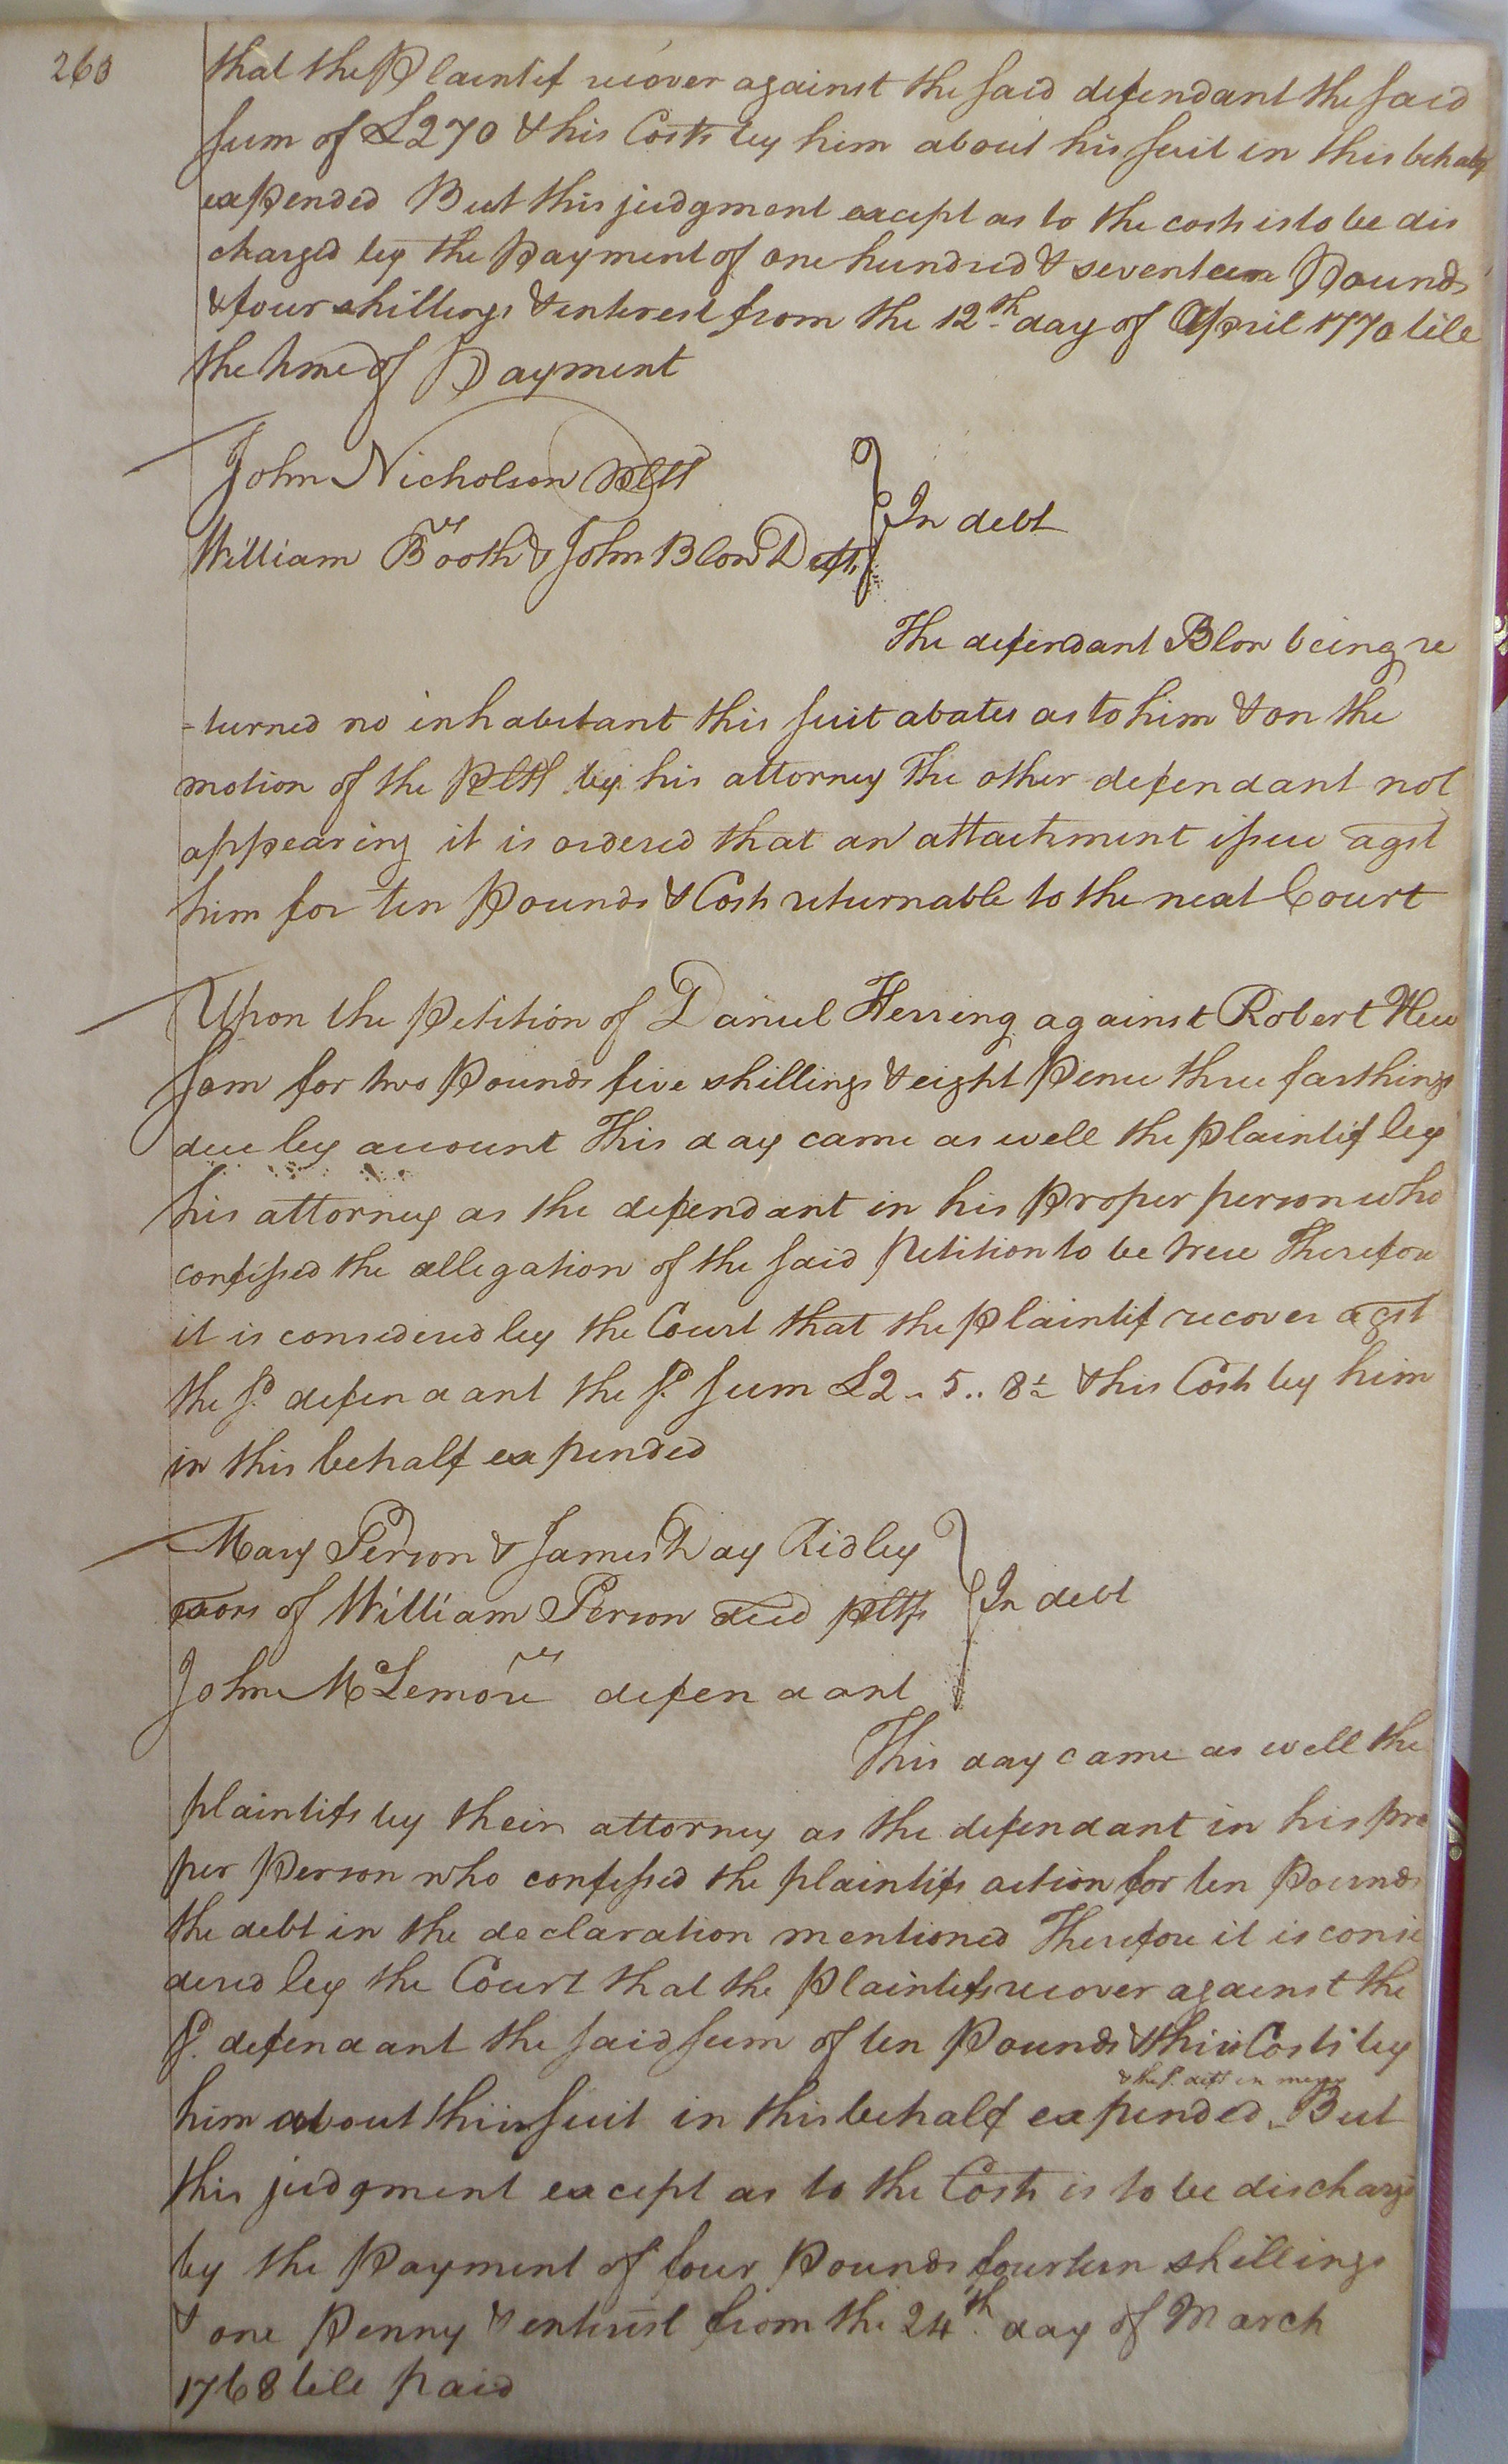 260
that the Plaintif recover against the said defendant the said
sum of £270 & his Costs by him about his suit in this behalf
expended But this judgment except as to the costs is to be dis
charged by the Payment of one hundred & seventeen Pounds
& four shillings & interest from the 12th day of April 1770 till
the time of Payment
John Nicholson Pltf
William Booth & John Blow Defts
In debt
The defendant Blow being re
-turned no inhabitant this suit abates as to him & on the
motion of the Pltf by his attorney The other defendant not
appearing it is ordered that an attachment issue agst
him for ten Pounds & Costs returnable to the next Court
Upon the Petition of Daniel Herring against Robert New
som for two Pounds five shillings & eight Pence three farthings
due by account This day came as well the Plaintif by
his attorney as the defendant in his Proper person who
confessed the allegation of the said Petition to be true Therefore
it is considered by the Court that the Plaintif recover agst
the sd. defendant the sd. sum £2 .. 5 .. 8 & his Costs by him
in this behalf expended
Mary Person & James Day Ridley
exors of William Person decd Pltfs
In debt
John McLemore defendant
This day came as well the
plaintifs by their attorney as the defendant in his pro
per Person who confessed the plaintifs action for ten Pounds
the debt in the declaration mentioned Therefore it is consi
dered by the Court that the Plaintifs recover against the
sd. defendant the said sum of ten Pounds & their Costs by
& the sd. deft in mercy
him about their suit in this behalf expended But
this judgment except as to the Costs is to be discharged
by the Payment of four Pounds fourteen shillings
& one Penny & interest from the 24th. day of March
1768 till paid